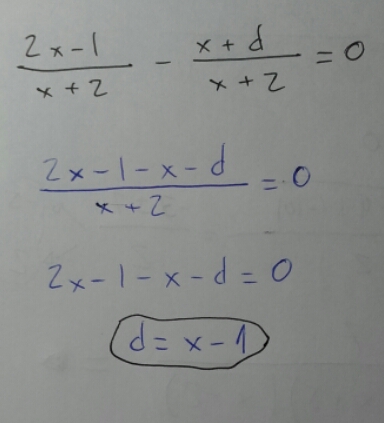 (2x-1)/(x+2) - (x+d)/(x+2) = 0
(2x-1-x-d)/(x+2) = 0
2x-1-x-d = 0
d = x-1